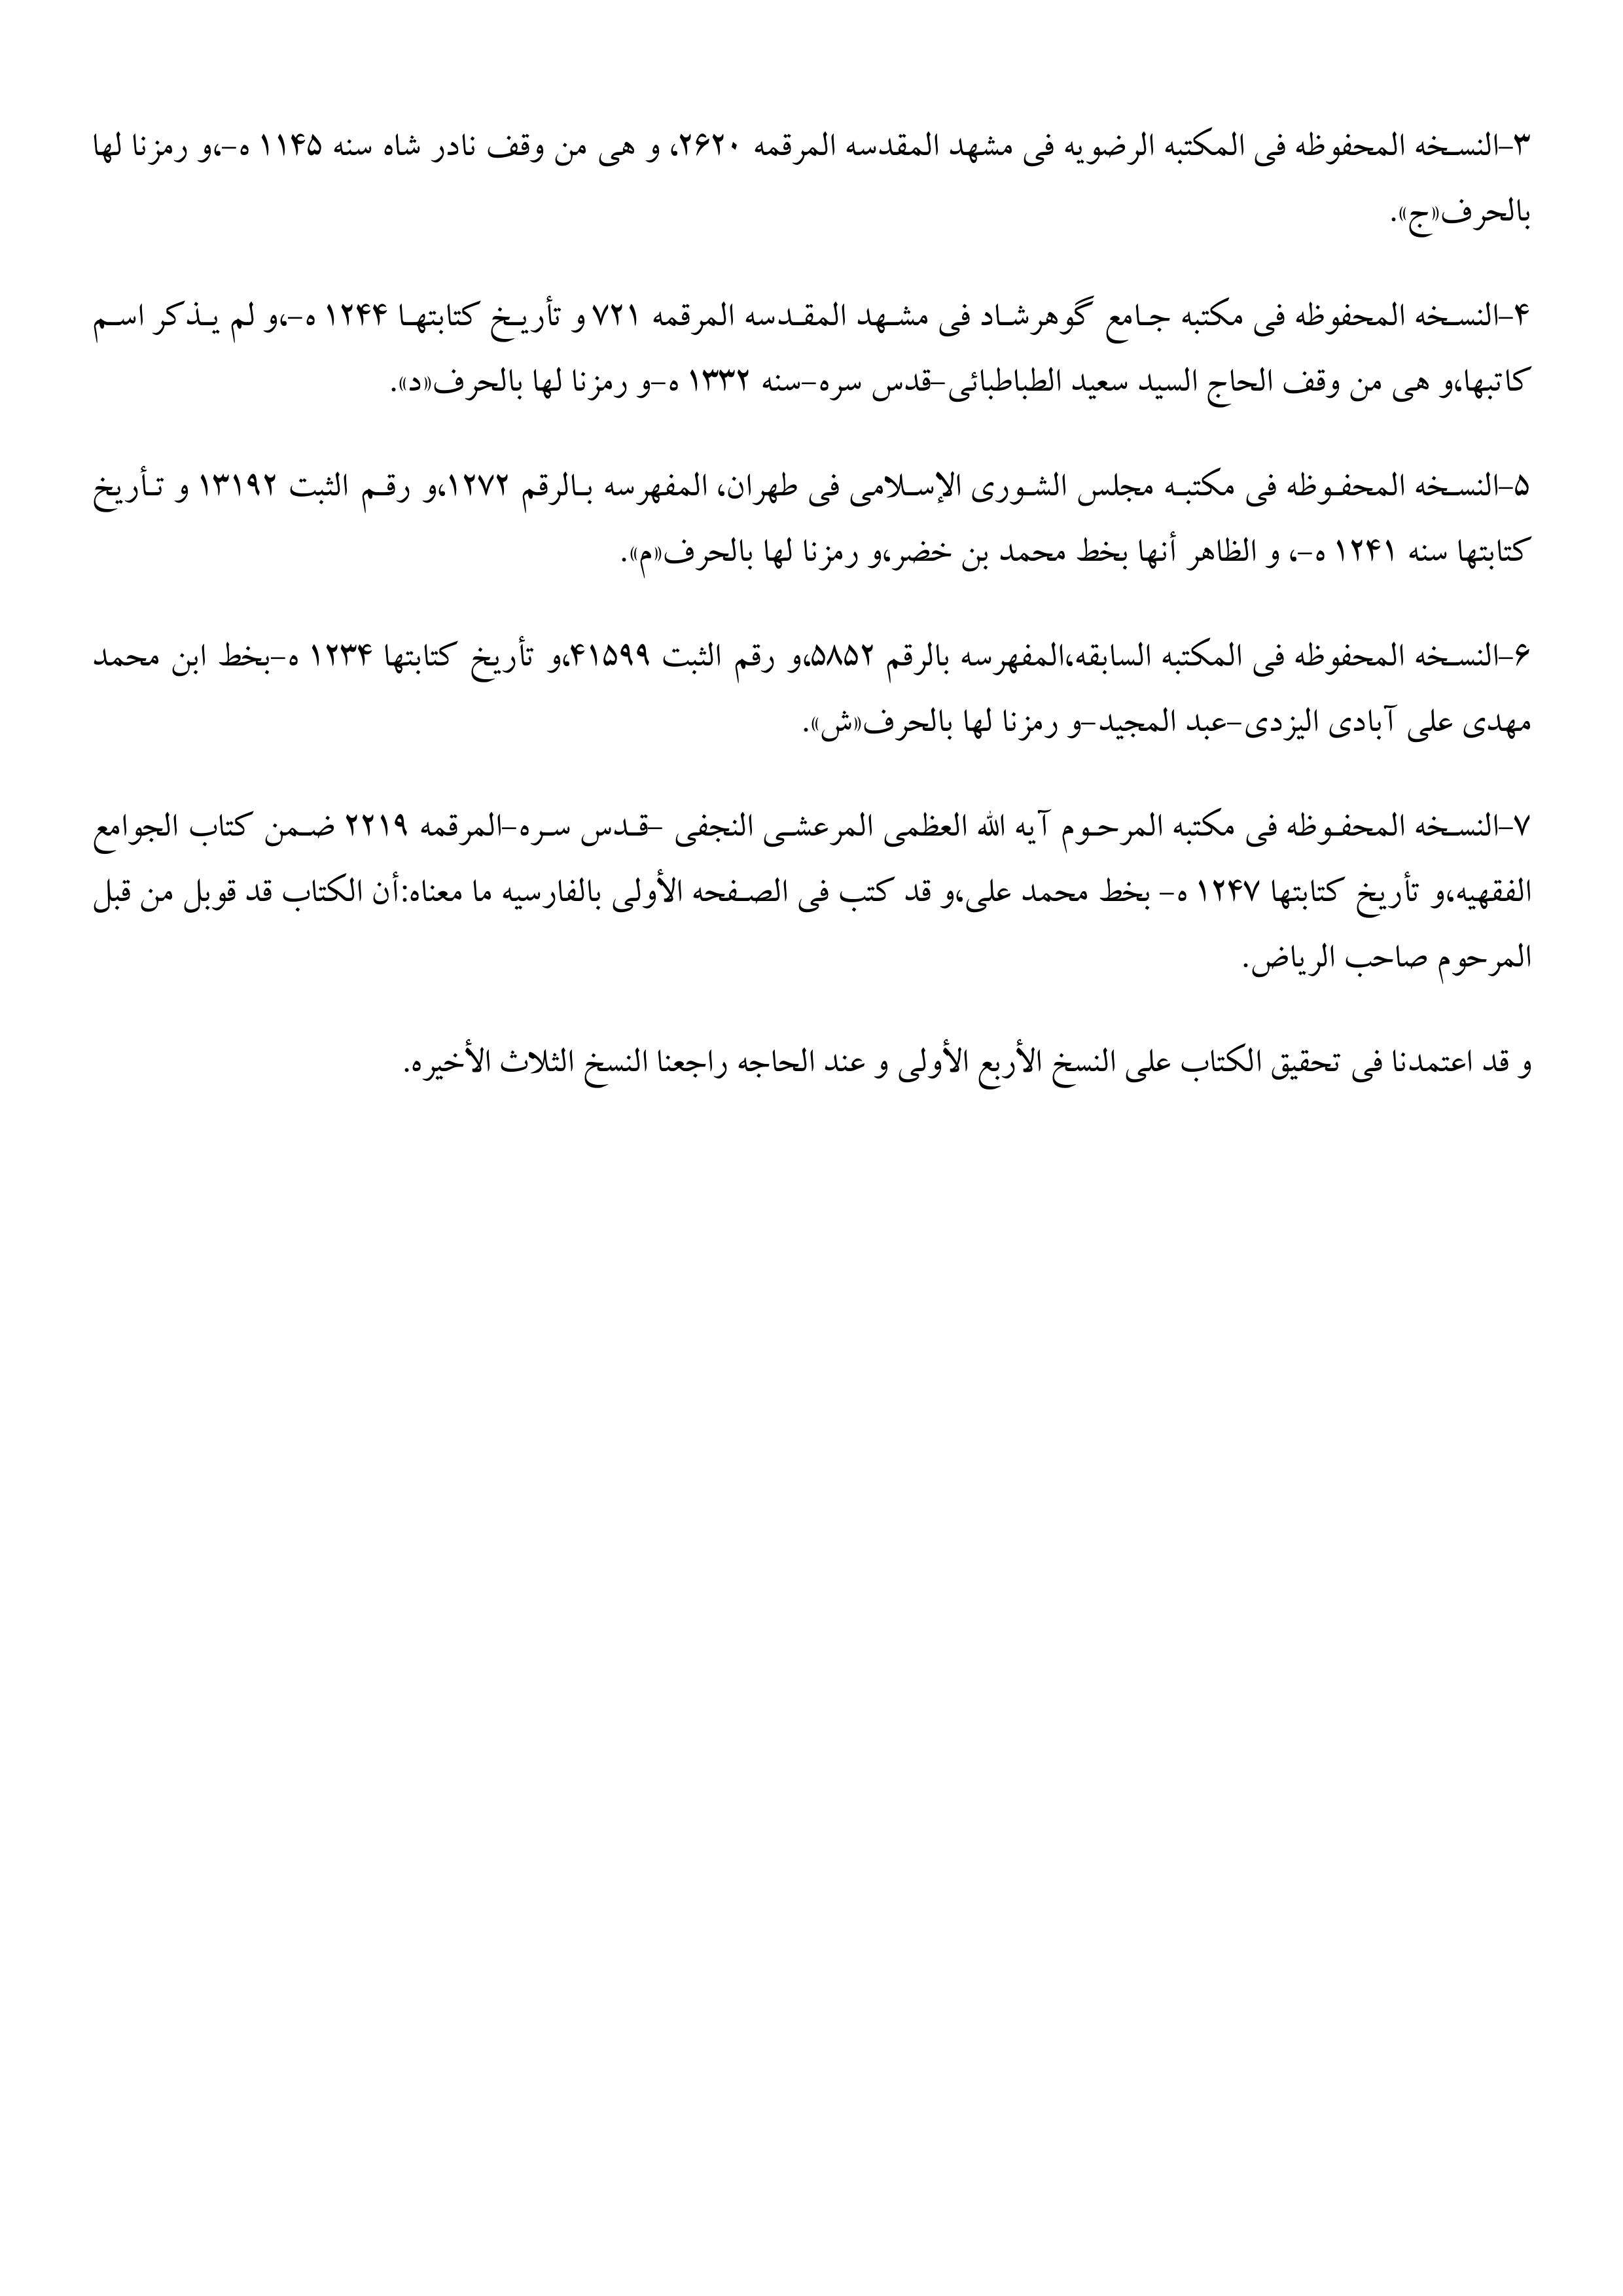 ۳-النسخه المحفوظه فی المکتبه الرضویه فی مشهد المقدسه المرقمه ۲۶۲۰، و هی من وقف نادر شاه سنه ۱۱۴۵ ه-،و رمزنا لها
بالحرف«ج».
۴-النسخه المحفوظه فی مکتبه جامع گوهرشاد فی مشهد المقدسه المرقمه ۷۲۱ و تأریخ کتابتها ۱۲۴۴ ه-،و لم یذکر اسم
کاتبها،و هی من وقف الحاج السید سعید الطباطبائی-قدس سره-سنه ۱۳۳۲ ه-و رمزنا لها بالحرف«د».
۵-النسخه المحفوظه فی مکتبه مجلس الشوری الإسلامی فی طهران، المفهرسه بالرقم ۱۲۷۲،و رقم الثبت ۱۳۱۹۲ و تأریخ
کتابتها سنه ۱۲۴۱ ه-، و الظاهر أنها بخط محمد بن خضر،و رمزنا لها بالحرف«م».
۶-النسخه المحفوظه فی المکتبه السابقه،المفهرسه بالرقم ۵۸۵۲،و رقم الثبت ۴۱۵۹۹،و تأریخ کتابتها ۱۲۳۴ ه-بخط ابن محمد
مهدی علی آبادی الیزدی-عبد المجید-و رمزنا لها بالحرف«ش».
۷-النسخه المحفوظه فی مکتبه المرحوم آیه الله العظمی المرعشی النجفی -قدس سره-المرقمه ۲۲۱۹ ضمن کتاب الجوامع
الفقهیه،و تأریخ کتابتها ۱۲۴۷ ه- بخط محمد علی،و قد کتب فی الصفحه الأولی بالفارسیه ما معناه:أن الکتاب قد قوبل من قبل
المرحوم صاحب الریاض.
و قد اعتمدنا فی تحقیق الکتاب علی النسخ الأربع الأولی و عند الحاجه راجعنا النسخ الثلاث الأخیره.